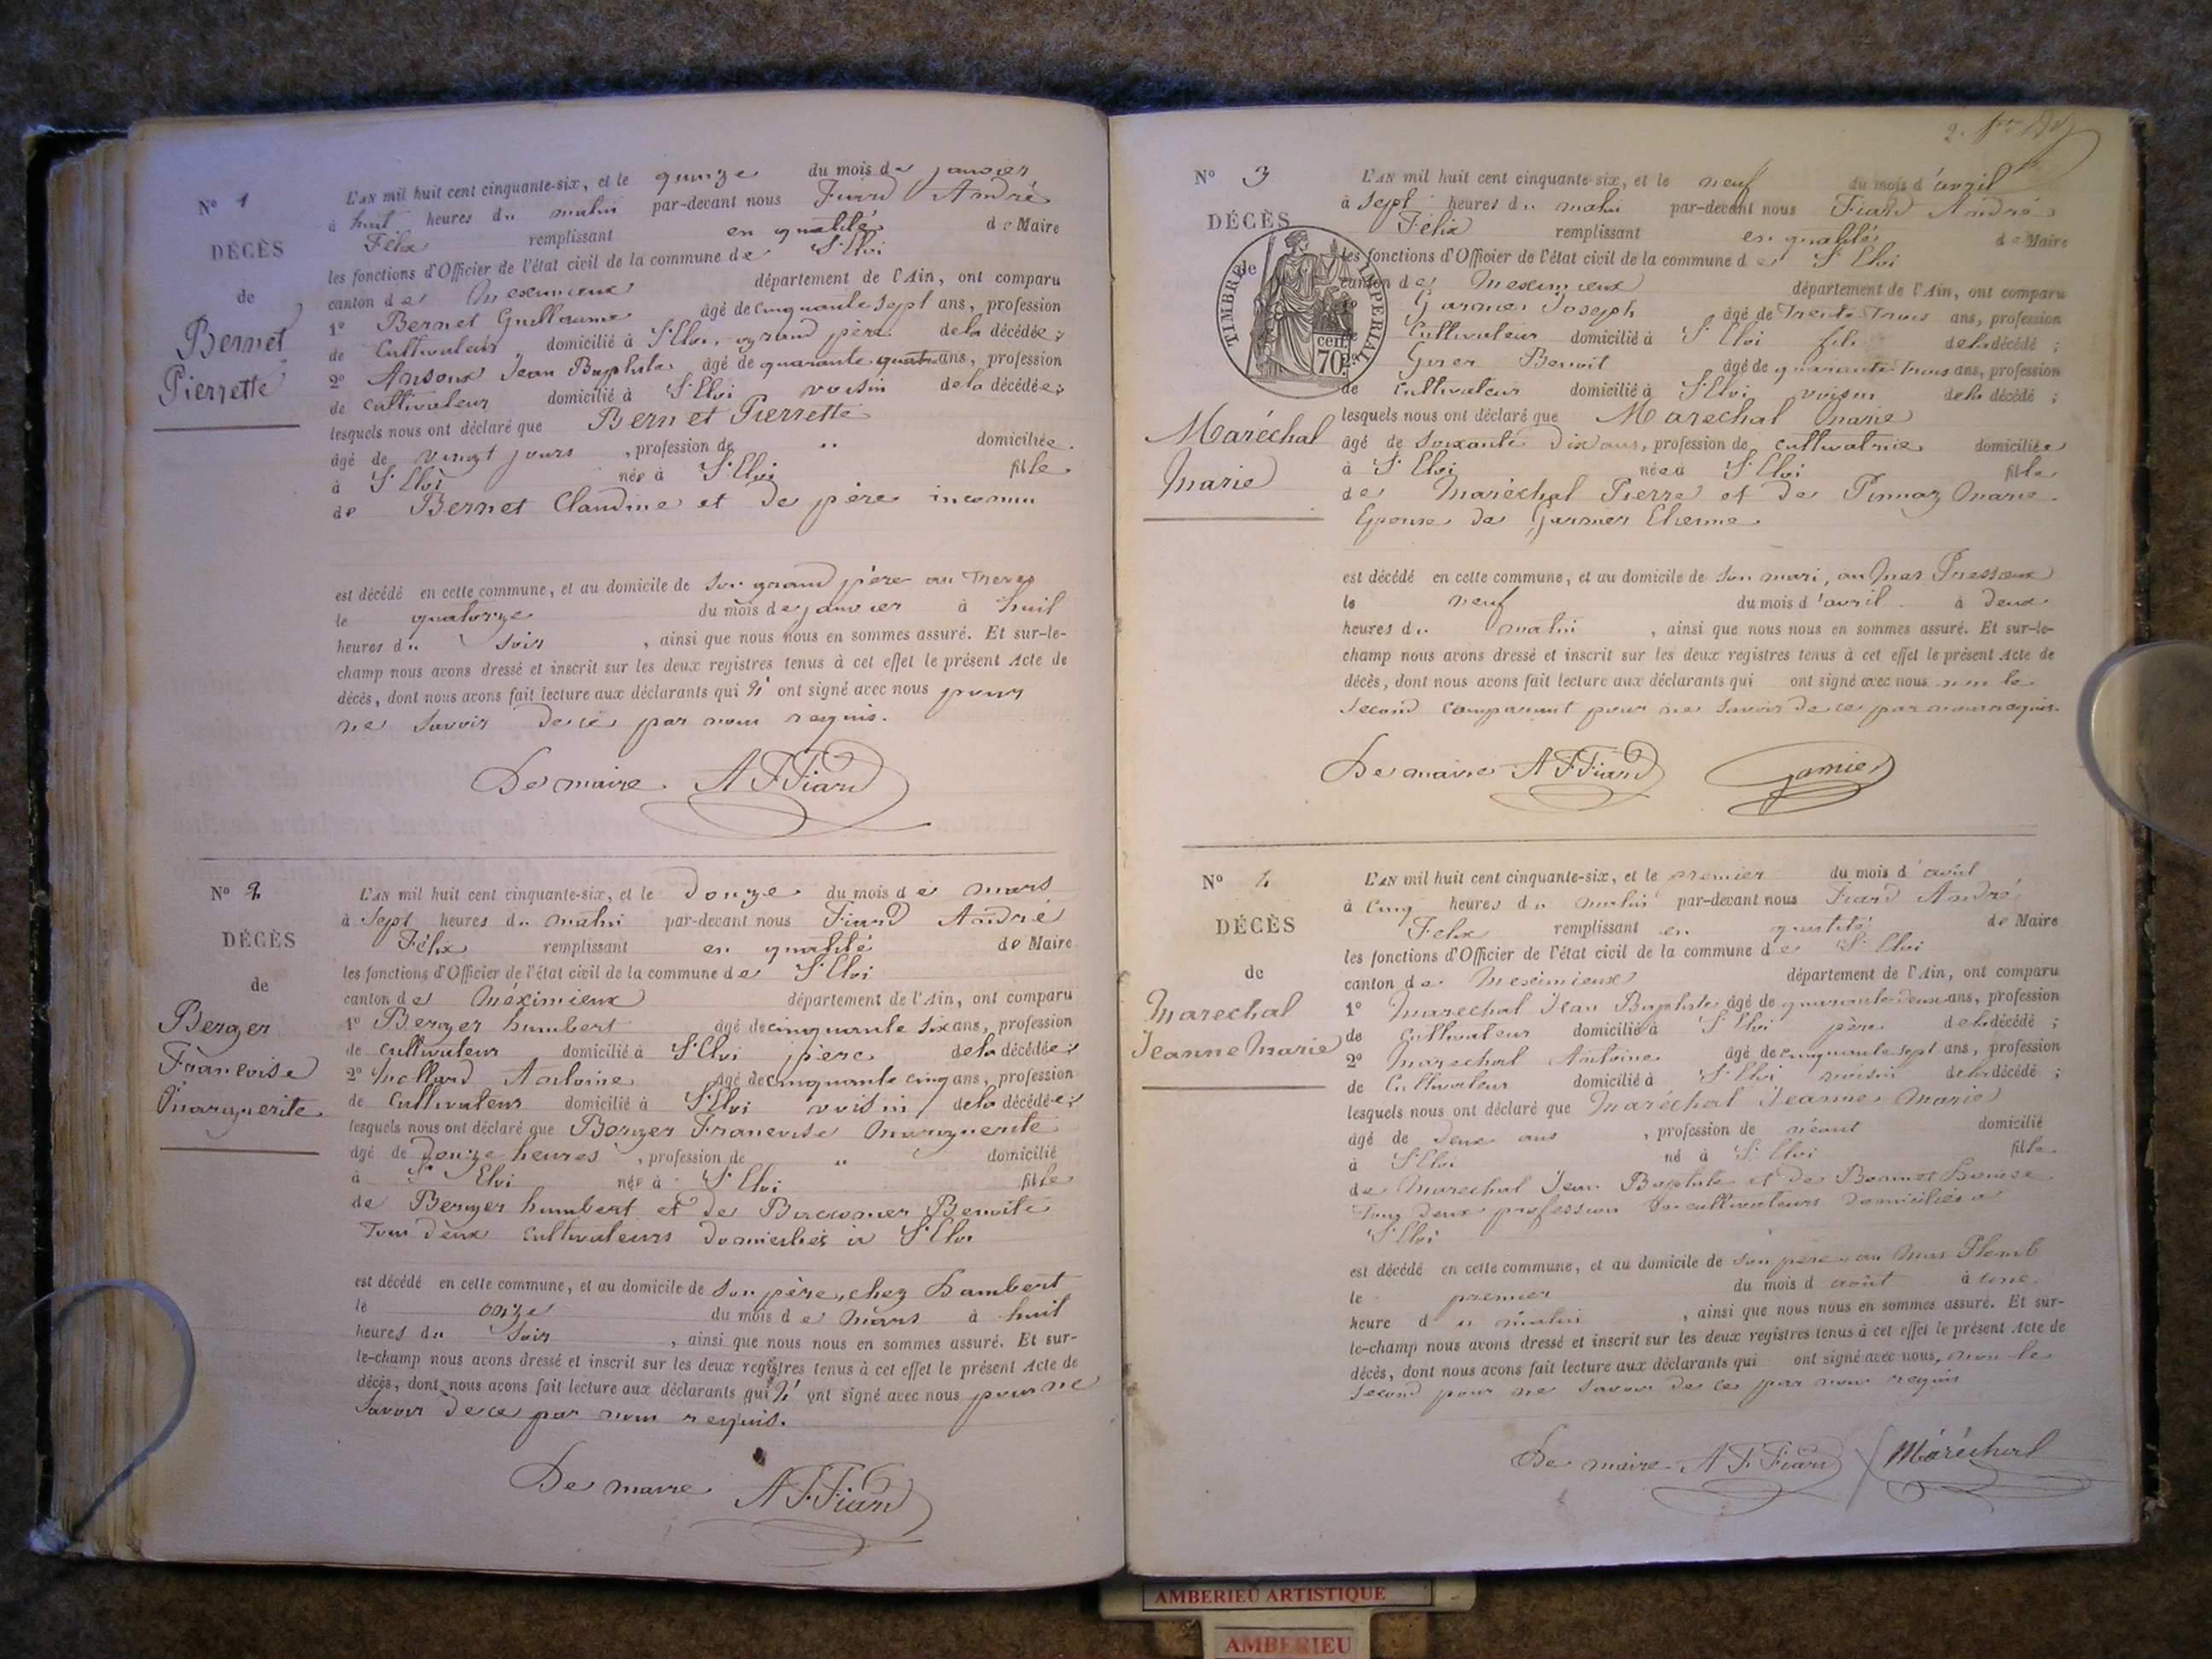 N° 1
DÉCÈS
de
Bernet
Pierrette
L'AN mil huit cent cinquante-six, et le quinze du mois de janvier
à huit heures du matin par-devant nous Fiard André
Félix remplissant en qualité de Maire
les fonctions d'Officier de l'état civil de la commune de St Eloi
canton de Meximieux département de l'Ain, ont comparu
1° Bernet Guillaume âgé de cinquante sept ans, profession
de cultivateur domicilié à St Eloi, grand père de la décédée;
2° Jean Baptiste âgé de quarante quatre ans, profession
de cultivateur domicilié à St Eloi voisin de la décédée;
lesquels nous ont déclaré que Bernet Pierrette
âgé de vingt jours, profession de " domiciliée
à St Eloi née à St Eloi fille
de Bernet Claudine et de père inconnu
est décédé en cette commune, et au domicile de son grand père au
le quatorze du mois de janvier à huit
heures du soir, ainsi que nous nous en sommes assuré. Et sur-le-
champ nous avons dressé et inscrit sur les deux registres tenus à cet effet le présent Acte de
décès, dont nous avons fait lecture aux déclarants qui n' ont signé avec nous pour
ne savoir de ce par nous requis.
Le maire A F Fiard
N° 2
DÉCÈS
de
Berger
Francoise
Marguerite
L'AN mil huit cent cinquante-six, et le douze du mois de mars
à sept heures du matin par-devant nous Fiard André
Félix remplissant en qualité de Maire
les fonctions d'Officier de l'état civil de la commune de St Eloi
canton de Méximieux département de l'Ain, ont comparu
1° Berger humbert âgé de cinquante six ans, profession
de cultivateur domicilié à St Eloi père de la décédée;
2° Mollard Antoine âgé de cinquante cinq ans, profession
de cultivateur domicilié à St Eloi voisin de la décédée;
lesquels nous ont déclaré que Berger Francoise Marguerite
âgé de douze heures, profession de " domicilié
à St Eloi née à St Eloi fille
de Berger humbert et de Benoite
Tous deux cultivateurs domiciliés à St Eloi
est décédé en cette commune, et au domicile de son père, chez Lambert
le onze du mois de mars à huit
heures du soir, ainsi que nous nous en sommes assuré. Et sur-
le-champ nous avons dressé et inscrit sur les deux registres tenus à cet effet le présent Acte de
décès, dont nous avons fait lecture aux déclarants qui n' ont signé avec nous pour ne
savoir de ce par nous requis.
Le maire A F Fiard
N° 3
DÉCÈS
de
TIMBRE IMPERIAL
70 cent
Maréchal
Marie
L'AN mil huit cent cinquante-six, et le neuf du mois d'avril
à sept heures du matin par-devant nous Fiard André
Félix remplissant en qualité de Maire
les fonctions d'Officier de l'état civil de la commune de St Eloi
canton de Meximieux département de l'Ain, ont comparu
Garnier Joseph âgé de Trente Trois ans, profession
cultivateur domicilié à St Eloi fils de la décédé;
Benoit âgé de quarante trois ans, profession
de cultivateur domicilié à St Eloi voisin de la décédé;
lesquels nous ont déclaré que Maréchal Marie
âgé de soixante dix ans, profession de cultivatrice domiciliée
à St Eloi née à St Eloi fille
de Maréchal Pierre et de Marie
Epouse de Garnier Etienne
est décédé en cette commune, et au domicile de son mari, au Mas
le neuf du mois d'avril à deux
heures du matin, ainsi que nous nous en sommes assuré. Et sur-le-
champ nous avons dressé et inscrit sur les deux registres tenus à cet effet le présent Acte de
décès, dont nous avons fait lecture aux déclarants qui ont signé avec nous non le
second comparant pour ne savoir de ce par nous requis.
Le maire A F Fiard Garnier
N° 4
DÉCÈS
de
Marechal
Jeanne Marie
L'AN mil huit cent cinquante-six, et le premier du mois d'août
à cinq heures du matin par-devant nous Fiard André
Felix remplissant en qualité de Maire
les fonctions d'Officier de l'état civil de la commune de St Eloi
canton de Meximieux département de l'Ain, ont comparu
1° Marechal Jean Baptiste âgé de quarante deux ans, profession
de cultivateur domicilié à St Eloi père de la décédé;
2° Marechal Antoine âgé de cinquante sept ans, profession
de cultivateur domicilié à St Eloi voisin de la décédé;
lesquels nous ont déclaré que Maréchal Jeanne Marie
âgé de deux ans, profession de néant domicilié
à St Eloi né à St Eloi fille
de Marechal Jean Baptiste et de Louise
Tous deux profession de cultivateurs domiciliés à
St Eloi
est décédé en cette commune, et au domicile de son père au Mas Plomb
le premier du mois d août à une
heure du matin, ainsi que nous nous en sommes assuré. Et sur-
le-champ nous avons dressé et inscrit sur les deux registres tenus à cet effet le présent Acte de
décès, dont nous avons fait lecture aux déclarants qui ont signé avec nous, non le
second pour ne savoir de ce par nous requis
Le maire A F Fiard Maréchal
AMBERIEU ARTISTIQUE
AMBERIEU